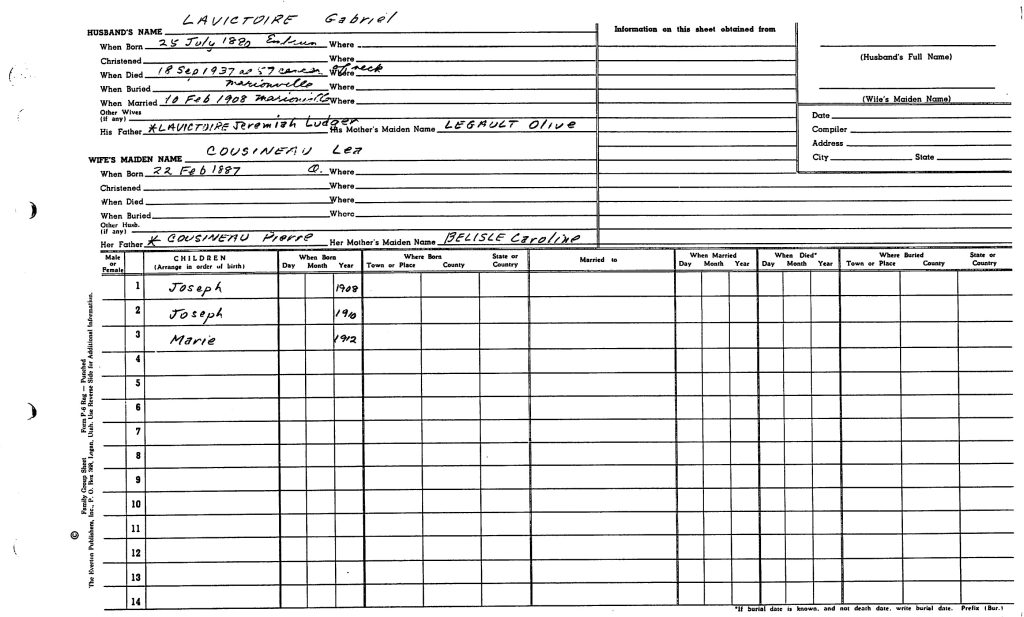 LAVICTOIRE Gabriel
HUSBAND'S NAME
When Born 25 July 1880 Embrun Where
Christened Where
When Died 18 Sep 1937 at 57 cancer of neck Where
When Buried Marionville Where
When Married 10 Feb 1908 Marionville Where
Other Wives
(if any)
His Father *LAVICTOIRE Jeremiah Ludger His Mother's Maiden Name LEGAULT Olive
COUSINEAU Lea
WIFE'S MAIDEN NAME
When Born 22 Feb 1887 O. Where
Christened Where
When Died Where
When Buried Where
Other Husb.
(if any)
Her Father * COUSINEAU Pierre Her Mother's Maiden Name BELISLE Caroline
Information on this sheet obtained from
(Husband's Full Name)
(Wife's Maiden Name)
Date
Compiler
Address
City State
Male or Female CHILDREN (Arrange in order of birth) When Born Day Month Year Where Born Town or Place County State or Country Married to When Married Day Month Year When Died* Day Month Year Where Buried Town or Place County State or Country
1 Joseph 1908
2 Joseph 1910
3 Marie 1912
4
5
6
7
8
9
10
11
12
13
14
*If burial date is known, and not death date, write burial date. Prefix (Bur.)
Family Group Sheet Form P-6 Rag — Punched
© The Everton Publishers, Inc., P. O. Box 368, Logan, Utah. Use Reverse Side for Additional Information.